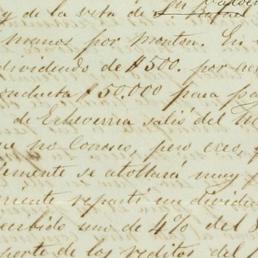 y de la veta de Sn Rafael
menos por monton. En
dividendo de $500. por
conducta $50.000 para
de Echeverria salió del M
no conoce, pero creo,
mente se atollará muy
riente repartí un divide
cibido uno de 4% del
porte de los reditos del